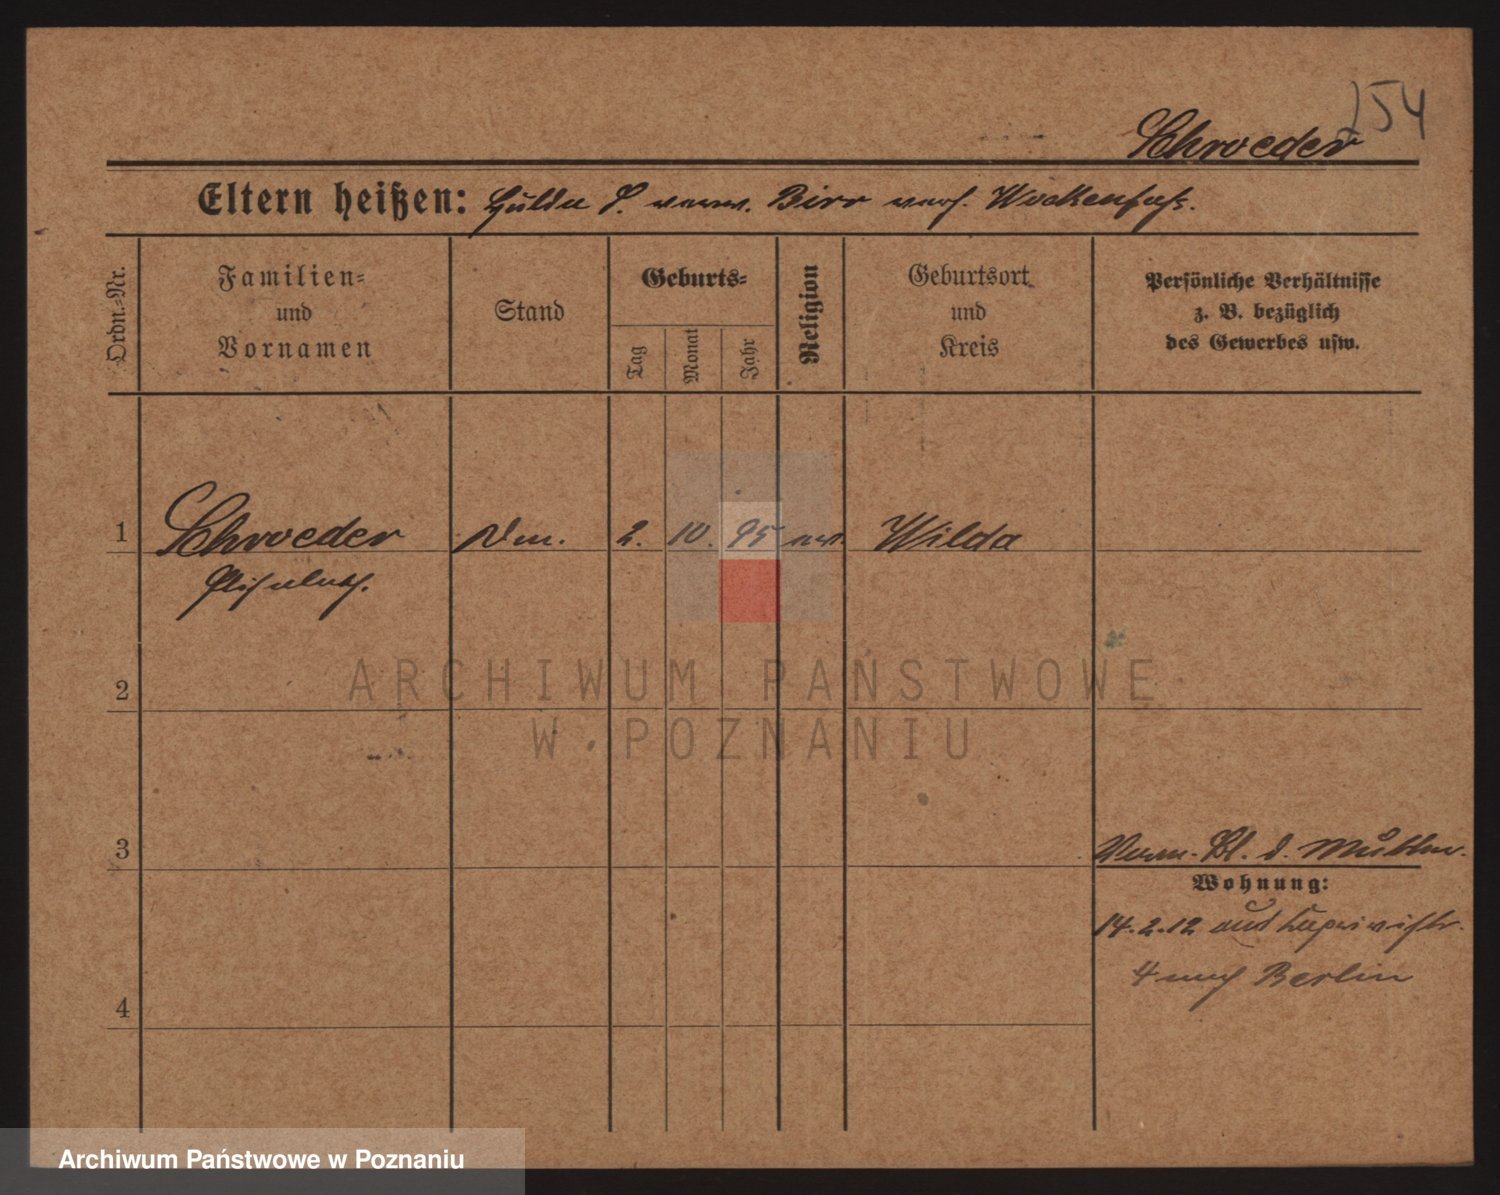 254
Schroeder
Eltern heißen: Hulda S. verw. Birr verh. Wockenfuß.
Ordn.=Nr.
Familien=
und
Vornamen
Stand
Geburts=
Tag
Monat
Jahr
Religion
Geburtsort
und
Kreis
Persönliche Verhältnisse
z. B. bezüglich
des Gewerbes usw.
1 Schroeder 2. 10. 95 ev. Wilda
Elisabeth.
2
3
4
d. Mutter.
Wohnung:
14.2.12 aus Caprivistr.
4 nach Berlin
ARCHIWUM PAŃSTWOWE
W POZNANIU
Archiwum Państwowe w Poznaniu